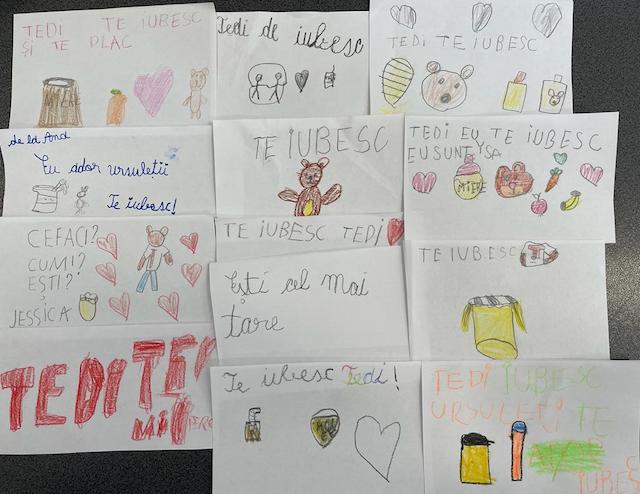 TEDI TE IUBESC
ȘI TE PLAC
MIERE
Tedi de iubesc
TEDI TE IUBESC
de la And
Eu ador ursuleții
Te iubesc!
TE IUBESC
TEDI EU TE IUBESC
EU SUNT YSA
MIERE
CEFACI?
CUMI?
EȘTI?
JESSICA
TE IUBESC TEDI
Ești cel mai
tare
TE IUBESC
TEDI
Te iubesc Tedi!
TEDI IUBESC
URSULERI TE
IUBESC